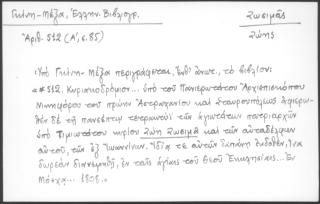 Γκίνη - Μέξα, Ἑλλην. Βιβλιογρ. Ζωσιμᾶς
Ἀριθ. 512 (Α', σ. 85) Ζώης
Ὑπὸ Γκίνη - Μέξα περιγράφεται, ἔνθ' ἀνωτ., τὸ βιβλίον:
«*512. Κυριακοδρόμιον... ὑπὸ τοῦ Πανιερωτάτου Ἀρχιεπισκόπου
Νικηφόρου τοῦ πρώην Ἀστραχανίου καὶ Σταυρουπόλεως ἀφιερω-
θὲν δὲ τῇ πανσέπτῳ τετρακτύϊ τῶν ἁγιωτάτων πατριαρχῶν
ὑπὸ Τιμιωτάτου κυρίου Ζώη Ζωσιμᾶ καὶ τῶν αὐταδέλφων
αὐτοῦ, τῶν ἐξ Ἰωαννίνων. Ἰδίᾳ τε αὐτῶν δαπάνῃ ἐκδοθέν, ἵνα
δωρεὰν διανεμηθῇ, ἐν ταῖς ἁγίαις τοῦ Θεοῦ Ἐκκλησίαις... Ἐν
Μόσχᾳ... 1808.